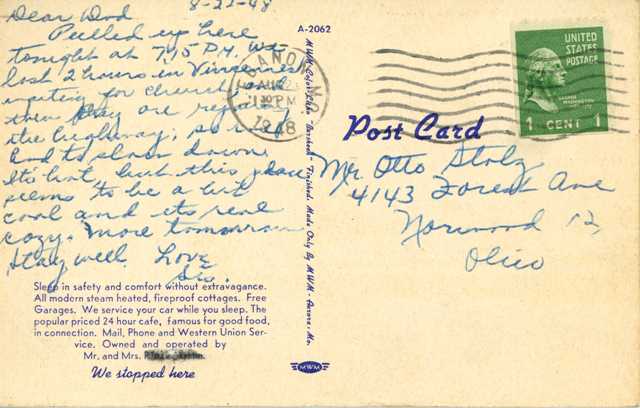 8-22-48
Dear Dad
Pulled up here
tonight at 7:15 P.M. We
lost 2 hours in Vincennes
waiting for church and
then they are repairing
the highway, so we
had to slow down.
It's hot but this place
seems to be a bit
cool and its real
cozy. More tomorrow
Stay well. Love
Sis.
Sleep in safety and comfort without extravagance.
All modern steam heated, fireproof cottages. Free
Garages. We service your car while you sleep. The
popular priced 24 hour cafe, famous for good food,
in connection. Mail, Phone and Western Union Ser-
vice. Owned and operated by
Mr. and Mrs.
We stopped here
A-2062
Finished. Made Only By MWM-Aurora, Mo.
MWM
AUG
PM
1948
UNITED
STATES
POSTAGE
GEORGE
WASHINGTON
1 CENT 1
Post Card
Mr. Otto Stolz
4143 Forest Ave
Norwood 12,
Ohio